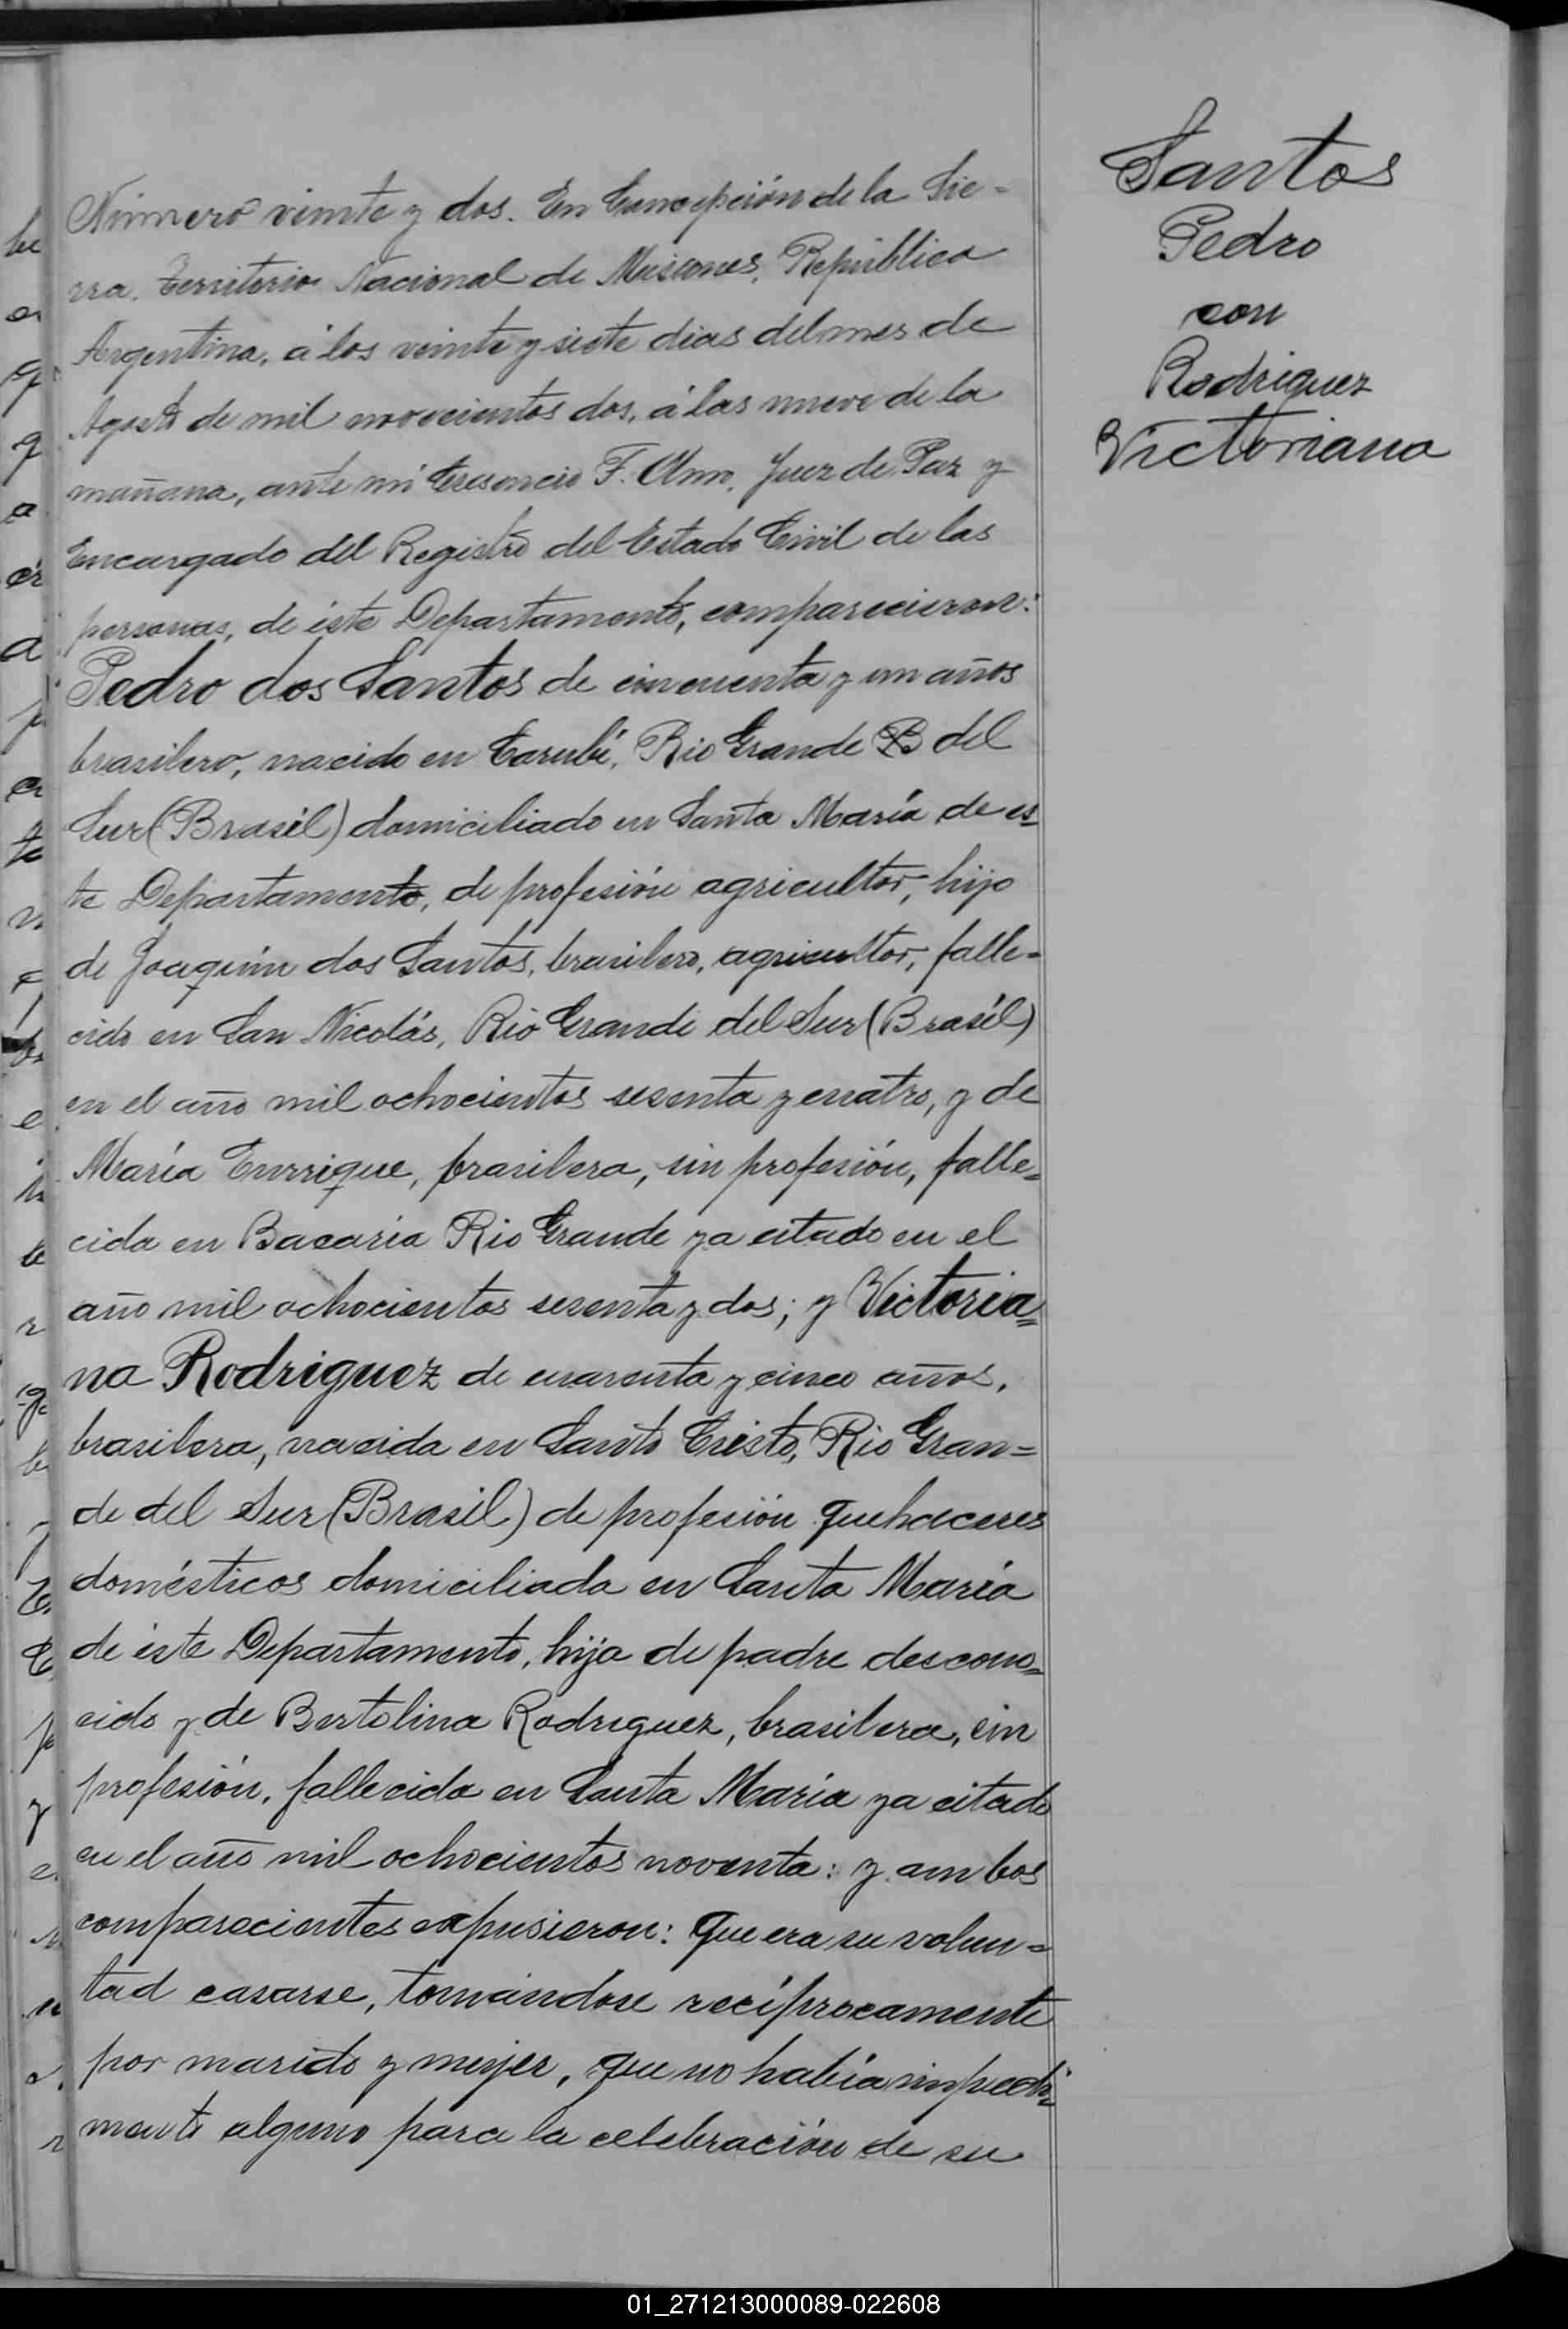 Número veinte y dos. En Concepción de la Sie-
rra, Territorio Nacional de Misiones, República
Argentina, á los veinte y siete dias del mes de
Agosto de mil novecientos dos, á las nueve de la
mañana, ante mí Cresencio F. Juez de Paz y
Encargado del Registro del Estado Civil de las
personas, de éste Departamento, comparecieron:
Pedro dos Santos de cincuenta y un años
brasilero, nacido en Rio Grande del
Sur (Brasil) domiciliado en Santa María de es-
te Departamento, de profesión agricultor, hijo
de Joaquín dos Santos, brasilero, agricultor, falle-
cido en San Nicolás, Rio Grande del Sur (Brasil)
en el año mil ochocientos sesenta y cuatro, y de
María Enrrique, brasilera, sin profesión, falle=
cida en Bacaria Rio Grande ya citado en el
año mil ochocientos sesenta y dos; y Victoria=
na Rodriguez de cuarenta y cinco años,
brasilera, nacida en Santo Cristo, Rio Gran=
de del Sur (Brasil) de profesión quehaceres
domésticos domiciliada en Santa María
de éste Departamento, hija de padre descono=
cido y de Bertolina Rodriguez, brasilera, sin
profesión, fallecida en Santa María ya citado
en el año mil ochocientos noventa: y ambos
comparecientes expusieron: Que era su volun=
tad casarse, tomándose recíprocamente
por marido y mujer, que no había impedi=
mento alguno para la celebración de su
Santos
Pedro
con
Rodriguez
Victoriana
01_271213000089-022608